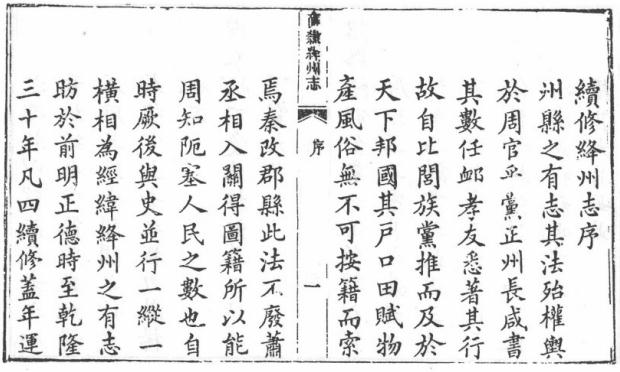 續修絳州志序
州縣之有志其法殆權輿
於周官乎黨正州長咸書
其數任卹孝友悉著其行
故自比閭族黨推而及於
天下邦國其戶口田賦物
產風俗無不可按籍而索
直隸絳州志
序
一
焉秦改郡縣此法不廢蕭
丞相入關得圖籍所以能
周知阨塞人民之數也自
時厥後與史並行一縱一
橫相為經緯絳州之有志
昉於前明正德時至乾隆
三十年凡四續修蓋年運